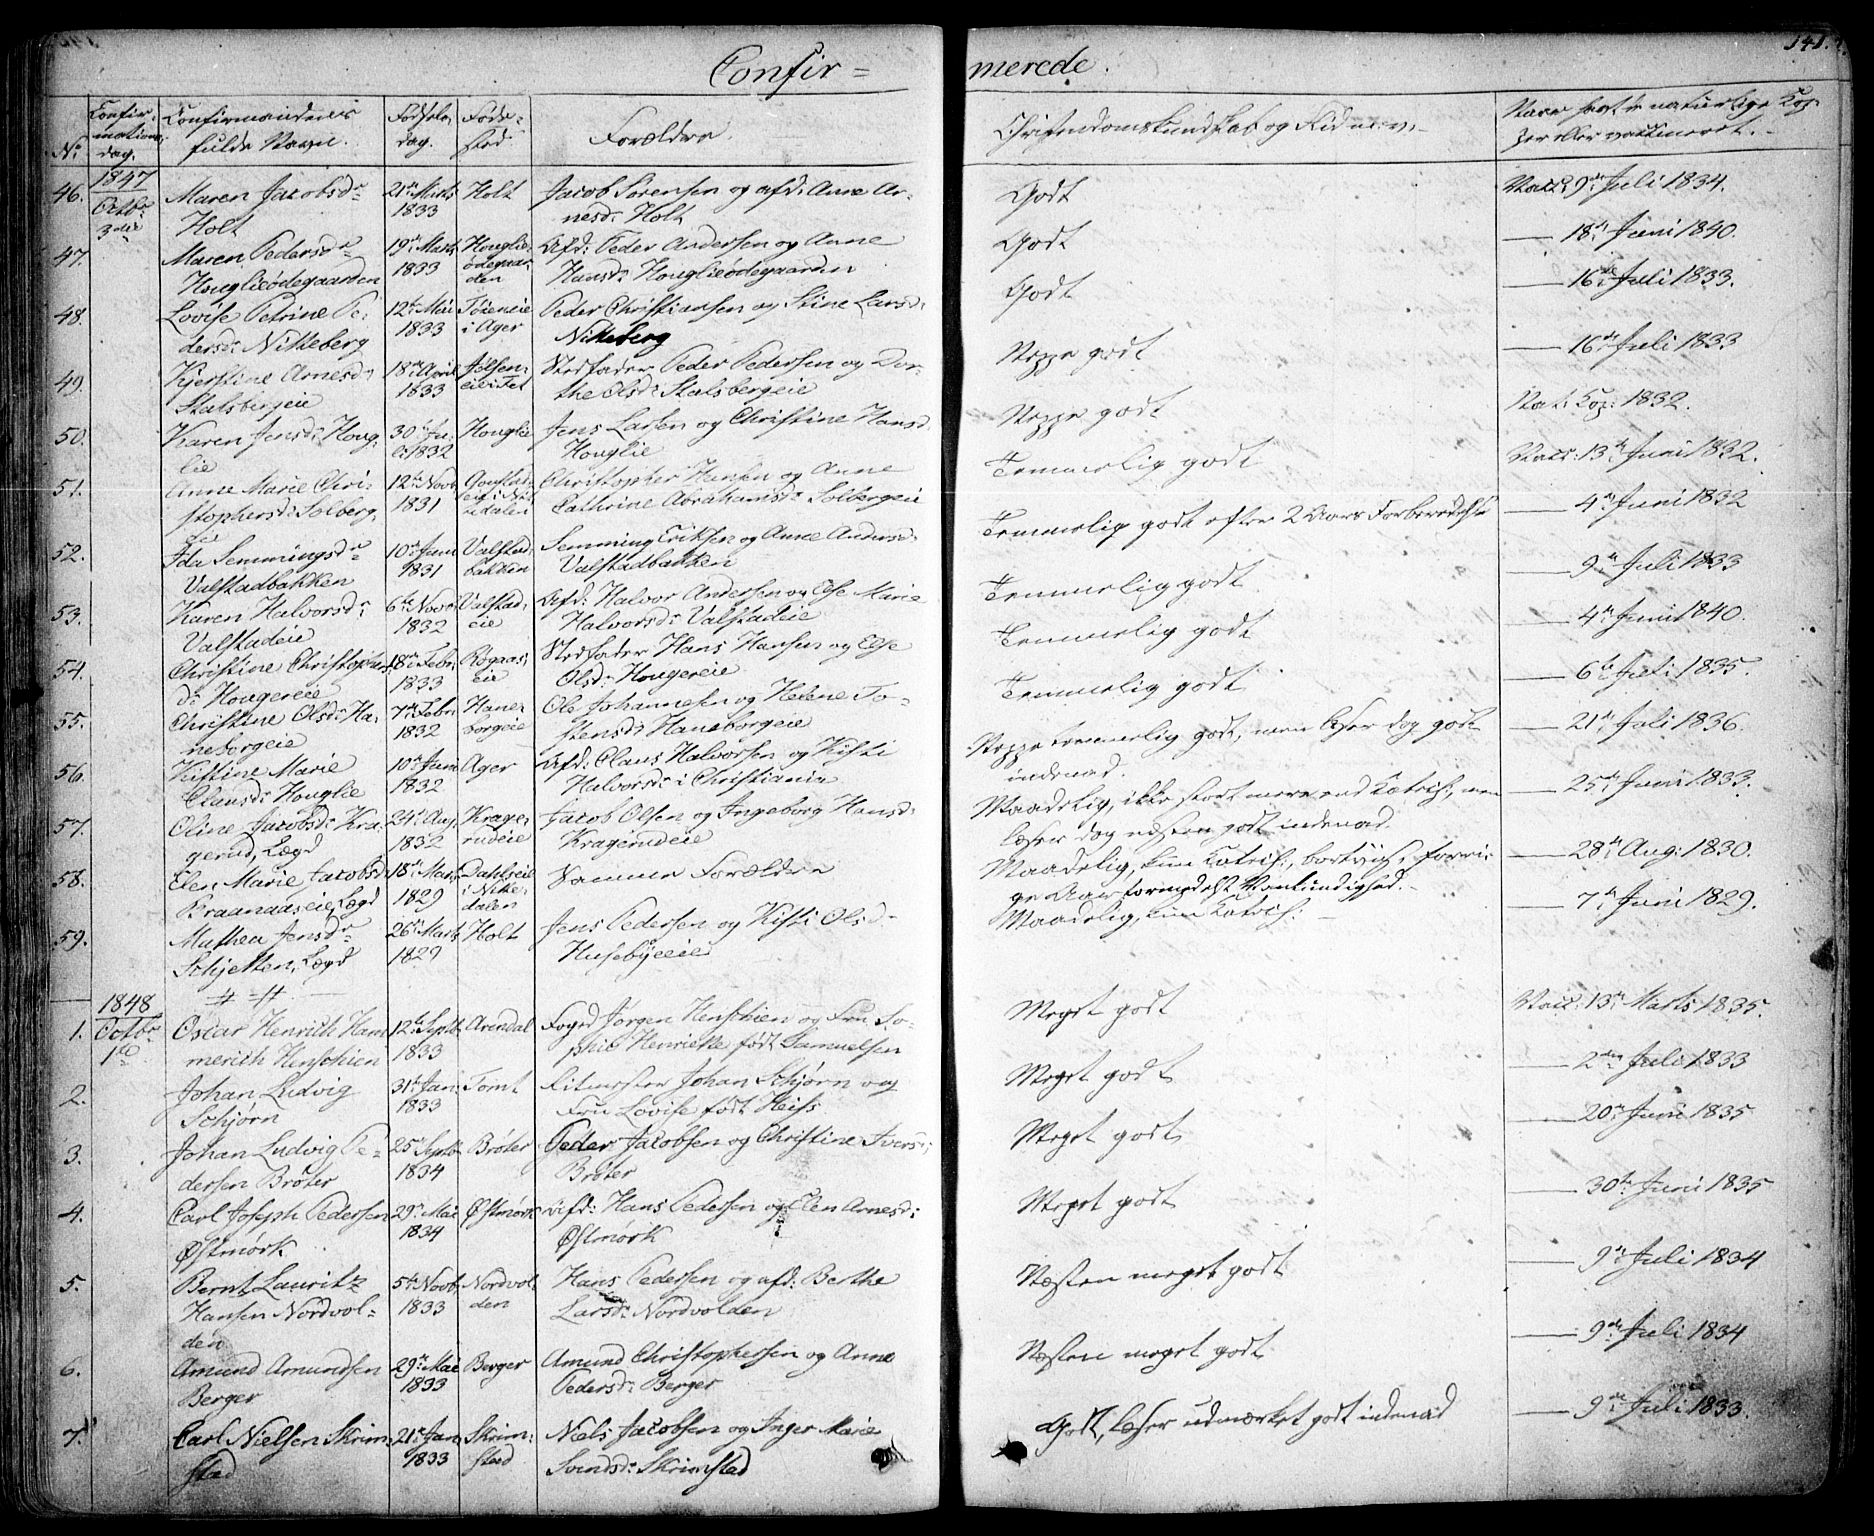 Confir=
merede.
141.
No
Confir-
mations
dag.
Confirmandens
fulde Navn
Fødsels-
dag.
Føde-
sted
Forældre.
Christendomskundskab og Flid m.v.
Have havt de naturlige Kop-
per eller vaccineret.
46.
1847
Octbr
3die
Maren Jacobsdr
Holt
21de Marts
1833
Holt
Jacob Sørensen og afd: Anne Ar-
nesd: Holt
Godt
Vacc: 9de Juli 1834.
47.
Maren Pedersdr
Houglieødegaarden
19de Marts
1833
Houglie-
ødegaar-
den
Afd: Peder Andersen og Anne
Hansd: Houglieødegaarden
Godt
— 18de Juni 1840.
48.
Lovise Petrine Pe-
dersd: Nitteberg
12te Mai
1833
i Ager
Peder Christiansen og Stine Larsd:
Nitteberg
Godt
— 16de Juli 1833.
49.
Kjerstine Arnesd:
Stalsbergeie
18de April
1833
Stedfader Peder Pedersen og Dor-
the Olsd: Stalsbergeie
Neppe godt
— 16de Juli 1833
50.
Karen Jensd: Houg-
lie
30te Ju-
1832
Houglie
Jens Larsen og Christine Hansd:
Houglie
Neppe godt
Nat: Kop: 1832.
51.
Anne Marie Chri-
stophersd: Solberg-
eie
12te Novb
1831
Christopher Hansen og Anne
Cathrine Abrahamsd: Solbergeie
Temmelig godt
Vacc: 13de Juni 1832.
52.
Ida Semmingsdr
Valstadbakken
10de Juni
1831
Valstad-
bakken
Semming Eriksen og Anne Andersd:
Valstadbakken
Temmelig godt efter 2 Aars Forberedelse
— 4de Juni 1832
53.
Karen Halvorsd:
Valstadeie
6te Novb
1832
Valstad-
eie
Afd: Halvor Andersen og Else Marie
Halvorsd: Valstadeie
Temmelig godt
— 9de Juli 1833
54.
Christine Christophers
d: Hougereie
18de Febr:
1833
Rogaas-
eie
Stedfader Hans Hansen og Else
Olsd: Hougereie
Temmelig godt
— 4de Juni 1840.
55.
Christine Olsd: Ha-
neborgeie
7de Febr:
1832
Hane-
borgeie
Ole Johannesen og Helene To-
stensd: Haneborgeie
Temmelig godt
— 6te Juli 1835.
56.
Kistine Marie
Clausd: Houglie
10de Juni
1832
Ager
Afd: Claus Halvorsen og Kisti
Halvorsd: i Christiania
Neppe temmelig godt, men læser dog godt
indenad.
— 21de Juli 1836.
57.
Oline Jacobsd: Kra-
gerud, Lægd
24de Aug.
1832
Krage-
rudeie
Jacob Olsen og Ingeborg Hansd:
Kragerudeie
Maadelig, ikke stort mere end Katech:, men
læser dog næsten godt indenad.
— 25de Juni 1833.
58.
Elen Marie Jacobsd:
Braanaaseie, Lægd
18de Mar.
1829
Dahlseie
i Nitte-
dalen
Samme Forældre
Maadelig, kun Katech:, bortvist forri-
ge Aar formedelst Vankundighed.
— 28de Aug: 1830.
59.
Mathea Jensdr
Schjetten, Lægd
26de Marts
1829
Holt
Jens Pedersen og Kisti Olsd:
Husebyeeie
Maadelig, kun Katech:
— 7de Juni 1829.
1848
Octbr
1ste
1.
Oscar Henrich Ham
merich Henschien
12te Septb
1833
Arendal
Foged Jørgen Henschien og Fru So-
phie Henriette født Samuelsen
Meget godt
Vacc: 13de Marts 1835.
2.
Johan Ludvig
Schjørn
31te Jan:
1833
Tomt
Ritmester Johan Schjørn og
Fru Lovise født Heiss
Meget godt
— 2den Juli 1833
3.
Johan Ludvig Pe-
dersen Brøter
25de Septb
1834
Brøter
Peder Jacobsen og Christine Iversd:
Brøter
Meget godt
— 20de Juni 1835
4.
Carl Joseph Pedersen
Østmørk
29de Mai
1834
Østmørk
Afd: Hans Pedersen og Elen Arnesd:
Østmørk
Meget godt
— 30te Juni 1835
5.
Bernt Lauritz
Hansen Nordvol-
den
5te Novb
1833
Nordvol-
den
Hans Pedersen og afd: Berthe
Larsd: Nordvolden
Næsten meget godt
— 9de Juli 1834
6.
Amund Amundsen
Berger
29de Mai
1833
Berger
Amund Christophersen og Anne
Pedersd: Berger
Næsten meget godt
— 9de Juli 1834
7.
Carl Nielsen Skrim-
stad
21de Jan:
1833
Skrim-
stad
Niels Jacobsen og Inger Marie
Svendsd: Skrimstad
Godt, læser udmærket godt indenad
— 9de Juli 1833.